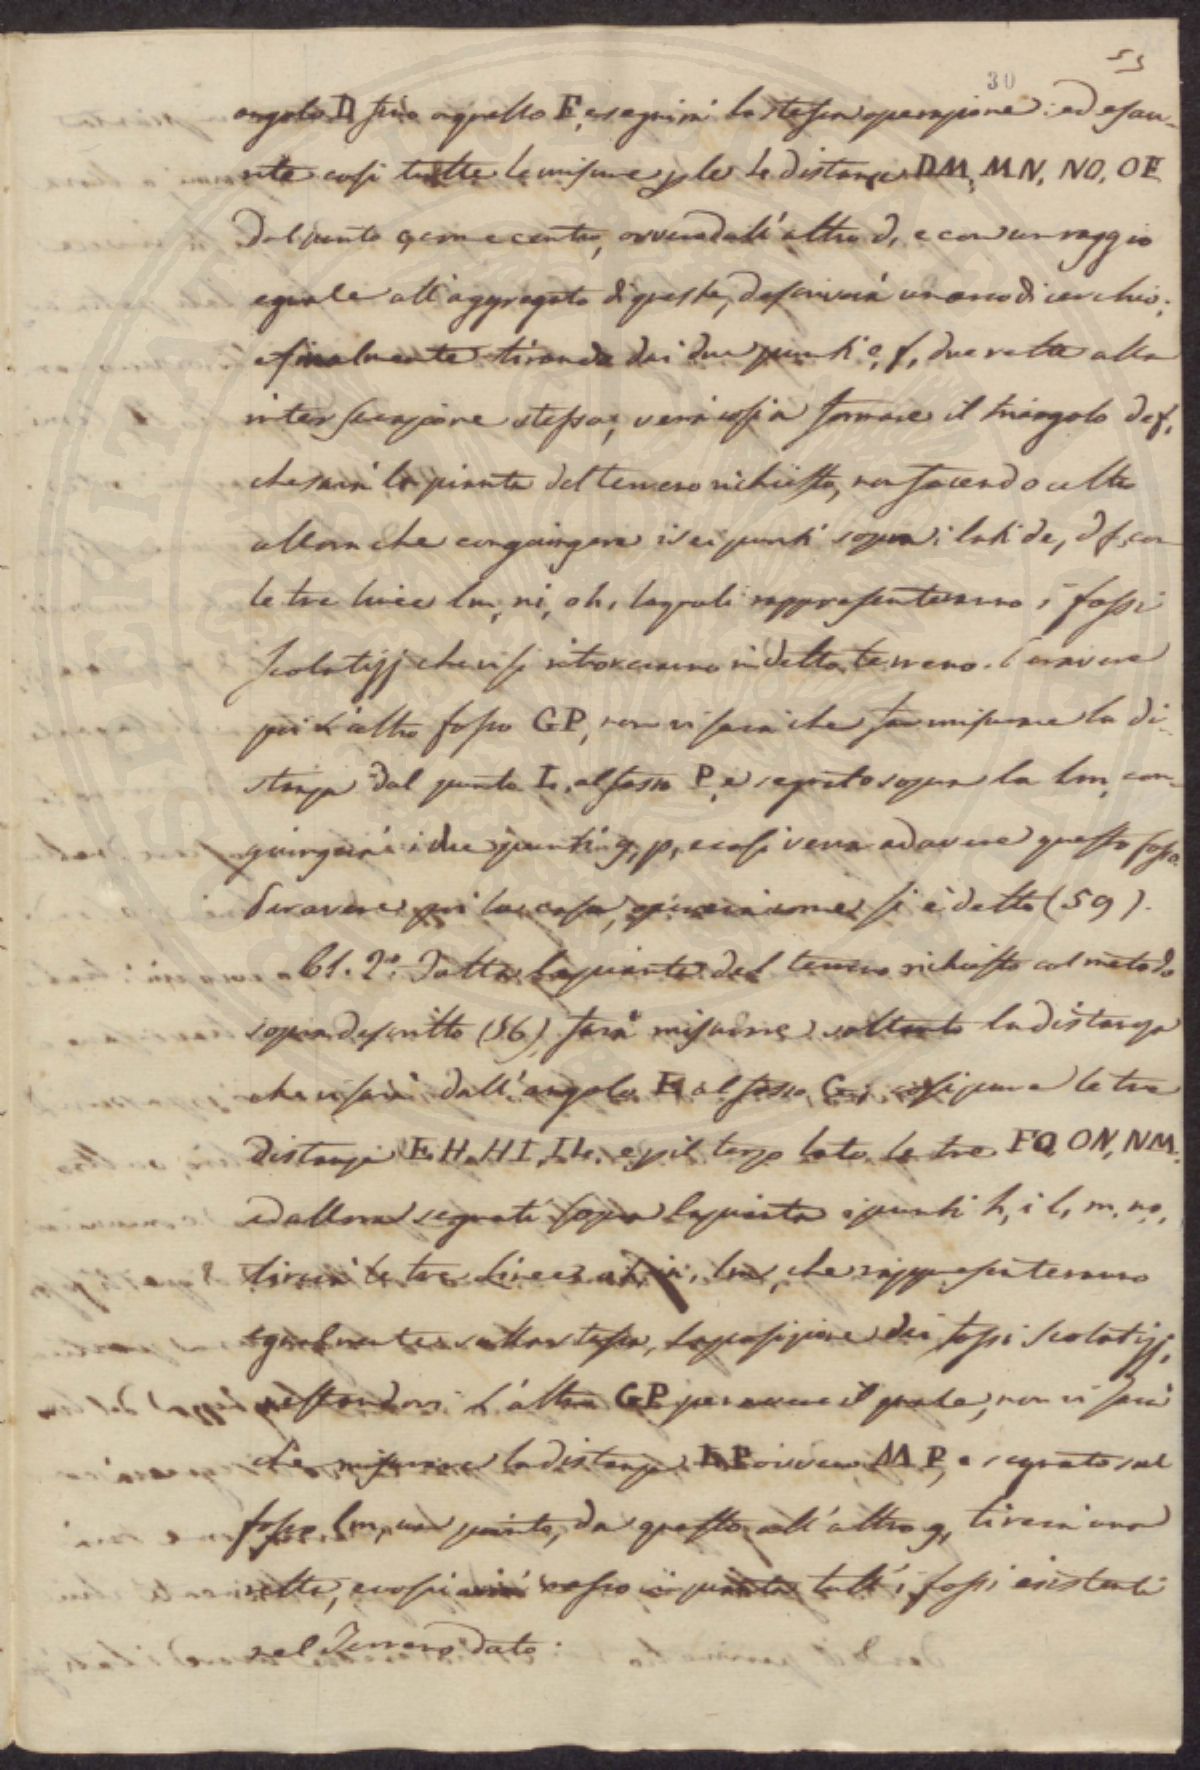 53
30
angolo D sino a quello F, eseguirà la stessa operazione: ed esau-
rite così tutte le misure p̱ le le distanze DM, MN, NO, OF
dal punto e come centro, ovvero dall'altro d, e con un raggio
eguale all'aggregato di queste, descriverà un arco di cerchio;
e finalmente tirando dai due punti e, f, due rette alla
intersecazione stessa, verrà così a formare il triangolo def,
che sarà la pianta del terreno richiesto, non facendo altro
allora che congiungere i sei punti sopra i lati de, df, con
le tre linee lm, ni, oh, le quali rappresenteranno i fossi
scolatizj che vi si ritroveranno in detto terreno. Per avere
poi l'altro fosso GP, non vi sarà che far misurare la di-
stanza dal punto L, al fosso P, e segnato sopra la lm, con-
giungerà i due punti g, p, e così verrà ad avere questo fosso.
Per avere poi la casa, opererà come si è detto (59).
61. 2.º Fatta la pianta del terreno richiesto col metodo
sopradescritto (56), farà misurare soltanto la distanza
che vi sarà dall'angolo E al fosso G, così pure le tre
distanze EH, HI, IL, e p̱ il terzo lato le tre FO, ON, NM.
ed allora segnati sopra la pianta i punti h, i, l, m, n, o,
tirerà le tre linee oh, ni, lm, che rappresenteranno
egualmente sulla stessa, la posizione dei fossi scolatizj,
restandovi l'altro GP per avere il quale, non vi sarà
che misurare la distanza LP ovvero MP, e segnato sul
fosso lm, un punto, da questo all'altro g, tirerà una
retta, e così avrà messo in pianta tutti i fossi esistenti
nel Terreno dato.